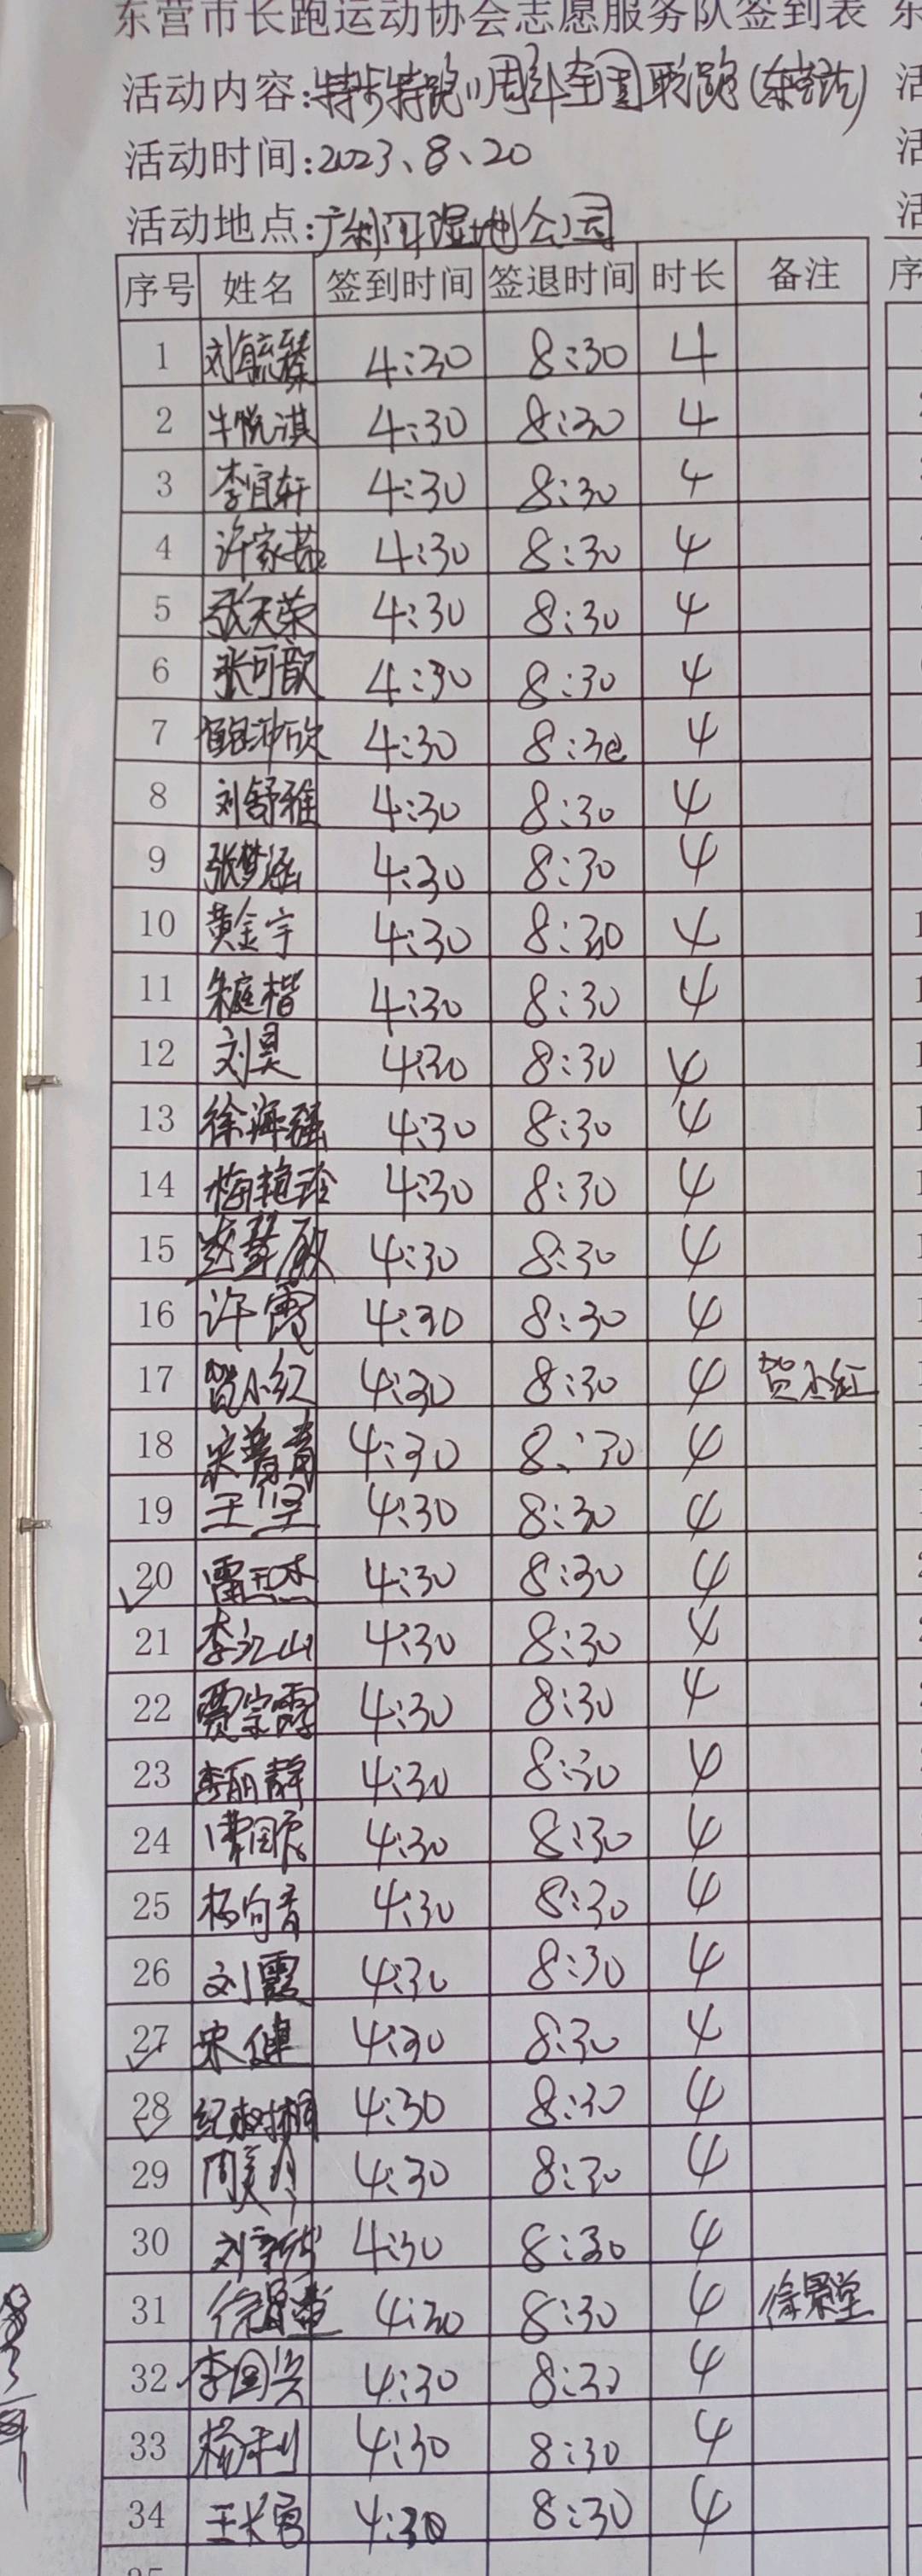 东营市长跑运动协会志愿服务队签到表
活动内容:特步特跑八周年全国联跑(东营站)
活动时间:2023、8、20
活动地点:广利河湿地公园
序号 姓名 签到时间 签退时间 时长 备注
1 刘毓蓁 4:30 8:30 4
2 牛悦淇 4:30 8:30 4
3 李宜轩 4:30 8:30 4
4 许家茹 4:30 8:30 4
5 张天荣 4:30 8:30 4
6 张可歆 4:30 8:30 4
7 4:30 8:30 4
8 刘舒雅 4:30 8:30 4
9 张梦涵 4:30 8:30 4
10 黄金宇 4:30 8:30 4
11 朱庭楷 4:30 8:30 4
12 刘昊 4:30 8:30 4
13 徐海强 4:30 8:30 4
14 梅艳玲 4:30 8:30 4
15 4:30 8:30 4
16 许霞 4:30 8:30 4
17 贺小红 4:30 8:30 4 贺小红
18 宋普青 4:30 8:30 4
19 王坚 4:30 8:30 4
20 4:30 8:30 4
21 李江山 4:30 8:30 4
22 贾宗霞 4:30 8:30 4
23 李丽静 4:30 8:30 4
24 4:30 8:30 4
25 杨向青 4:30 8:30 4
26 刘霞 4:30 8:30 4
27 宋健 4:30 8:30 4
28 4:30 8:30 4
29 周美月 4:30 8:30 4
30 4:30 8:30 4
31 徐景堂 4:30 8:30 4 徐景堂
32 李国兴 4:30 8:30 4
33 杨利 4:30 8:30 4
34 王长勇 4:30 8:30 4